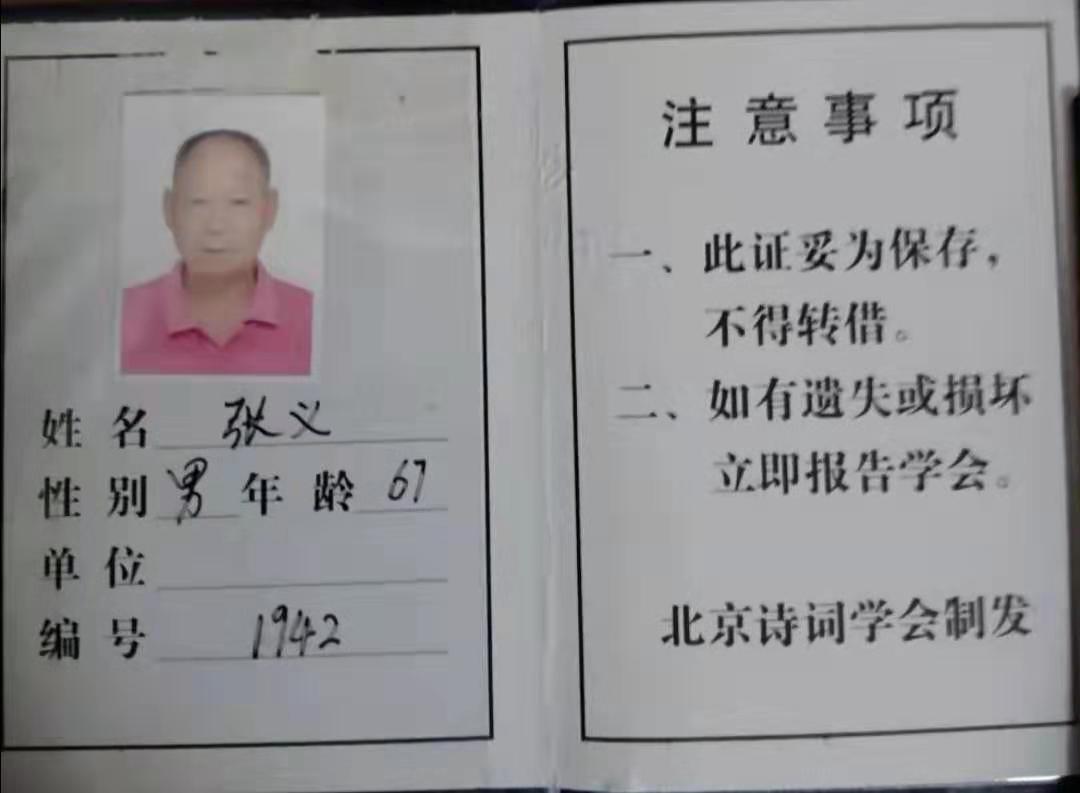 姓名 张义
性别 男 年龄 67
单位
编号 1942
注意事项
一、此证妥为保存，
不得转借。
二、如有遗失或损坏
立即报告学会。
北京诗词学会制发